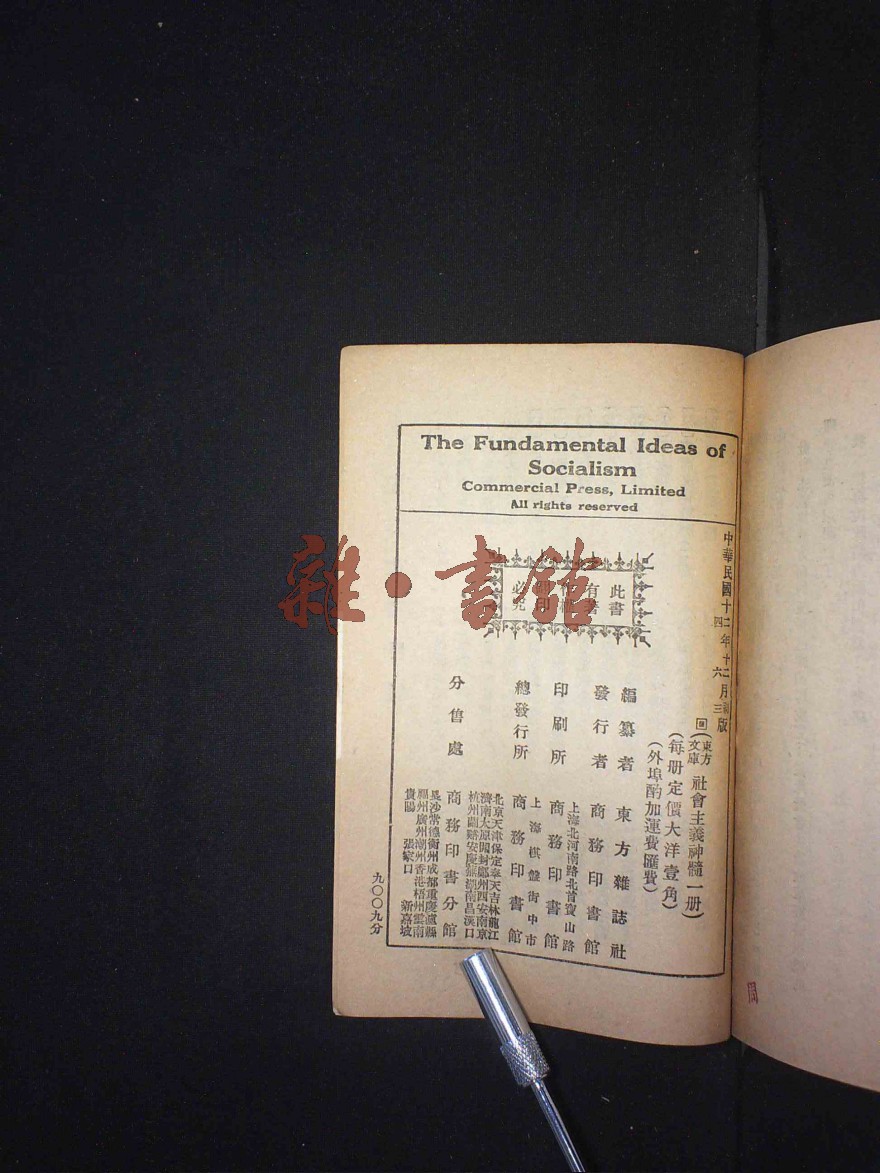 The Fundamental Ideas of
Socialism
Commercial Press, Limited
All rights reserved
中華民國十二年十二月初版
四 六 三
東方文庫
社會主義神髓一册
(每册定價大洋壹角)
(外埠酌加運費匯費)
此書
有著
作權
翻印
必究
編纂者 東方雜誌社
發行者 商務印書館
上海北河南路北首寶山路
印刷所 商務印書館
上海棋盤街中市
總發行所 商務印書館
北京天津保定奉天吉林龍江
濟南太原開封鄭州西安南京
杭州蘭谿安慶蕪湖南昌漢口
分售處 商務印書分館
長沙常德衡州成都重慶瀘縣
福州廣州潮州香港梧州雲南
貴陽 張家口 新嘉坡
九〇〇九分
雜·書館